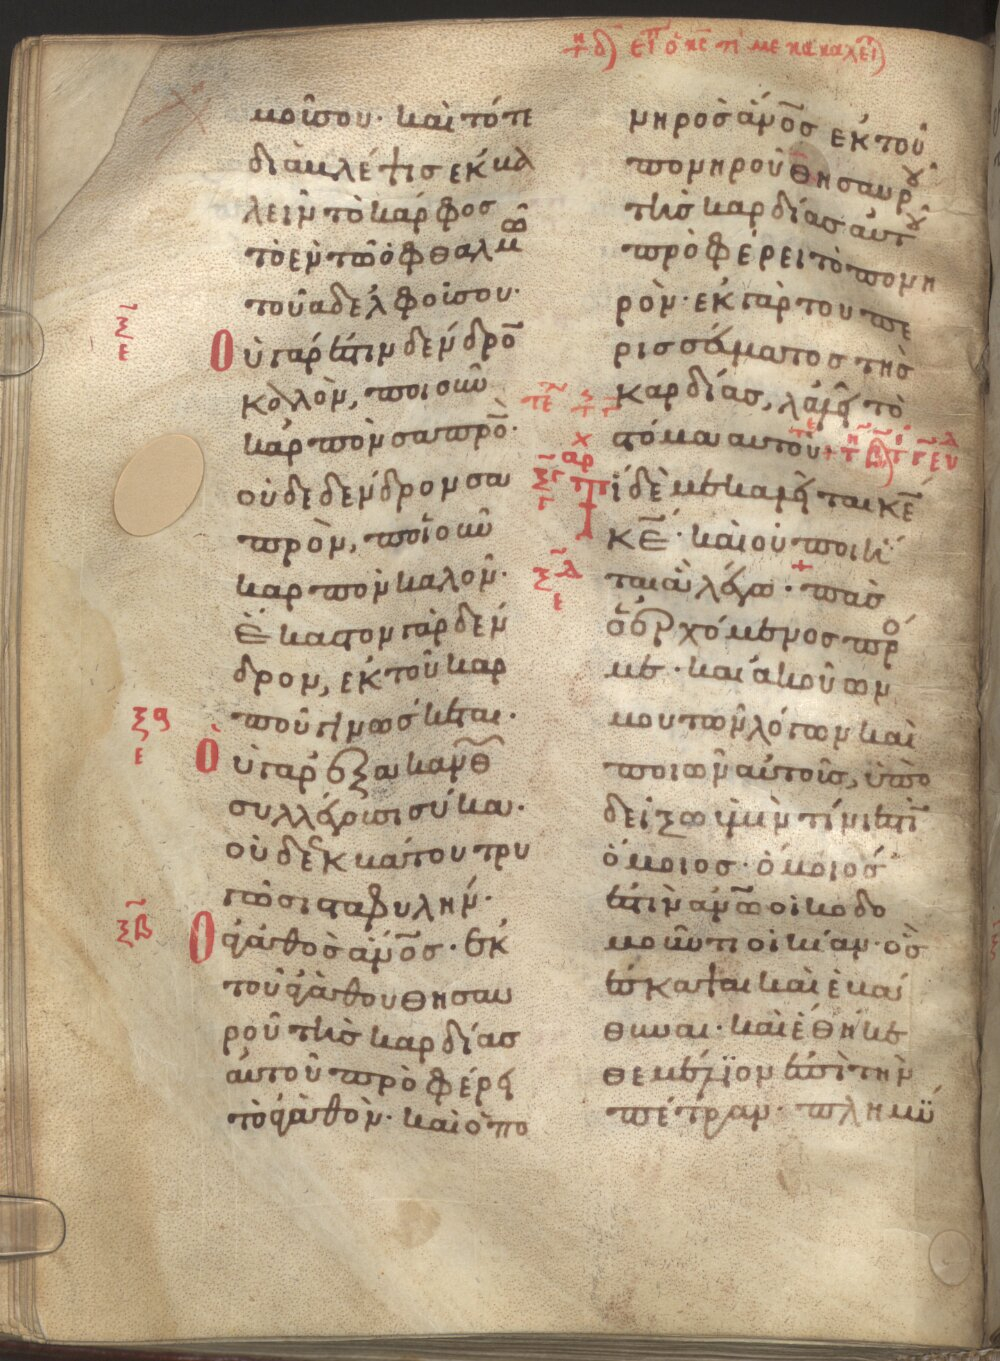 εἶπ ὁ κς τί με κε καλεῖτ
μοῖσου· καὶ τότε
διαμλέψισ εκμα
λεῖν τὸ κάρφοσ
τὸ ἐν τῶ ὀφθαλμῶ
τοῦ αδελφοῖσου·
Οὐ γάρ ἐστιν δένδρον
καλὸν, ποιοῦν
κάρπὸν σαπρόν·
οὐδε δένδρον σα
πρὸν, ποιοῦν
καρπὸν καλον·
Ἕκαστον γὰρ δέν
δρον, ἐκ τοῦ καρ
ποῦ γινώσκεται·
Οὐ γὰρ ἐξ ακανθ
συλλέγουσι σύκα·
οὐδὲ ἐκ βάτου τρυ
γῶσι σταφυλήν·
Ὁ ἀγαθὸσ ἄνος· ἐκ
τοῦ ἀγαθου θησαυ
ροῦ τῆσ καρδίασ
αὐτοῦ προφέρει
τὸ ἀγαθὸν· καὶ ὁ πο
νηρὸσ ἄνος ἐκ τοῦ
πονηροῦ θησαυρου
τῆσ καρδίασ αυτου
προφέρει τὸ πονη
ρὸν· ἐκ γὰρ του πε
ρισσεύματοσ τῆσ
καρδίασ, λαλεῖ τὸ
στόμα αυτοῦ
τί δέ με καλεῖται κε
κε· καὶ οὐ ποιεῖ
ται ἃ λέγω· πᾶσ
ὁ ἐρχόμενοσ πρό
με· καὶ ἀκούων
μου τῶν λόγων καὶ
ποιῶν αὐτοὺσ, ὑπο
δείξω ὑμὶν τίνι ἐστὶ
ὅμοιοσ· ὅμοιόσ
ἐστιν ανω οἰκοδο
μοῦντι οἰκίαν· ὃσ
ἔσκαψαι καὶ ἐβα
θυναι· καὶ ἔθηκε
θεμέλιον ἐπὶ τὴν
πέτραν· πλημυ